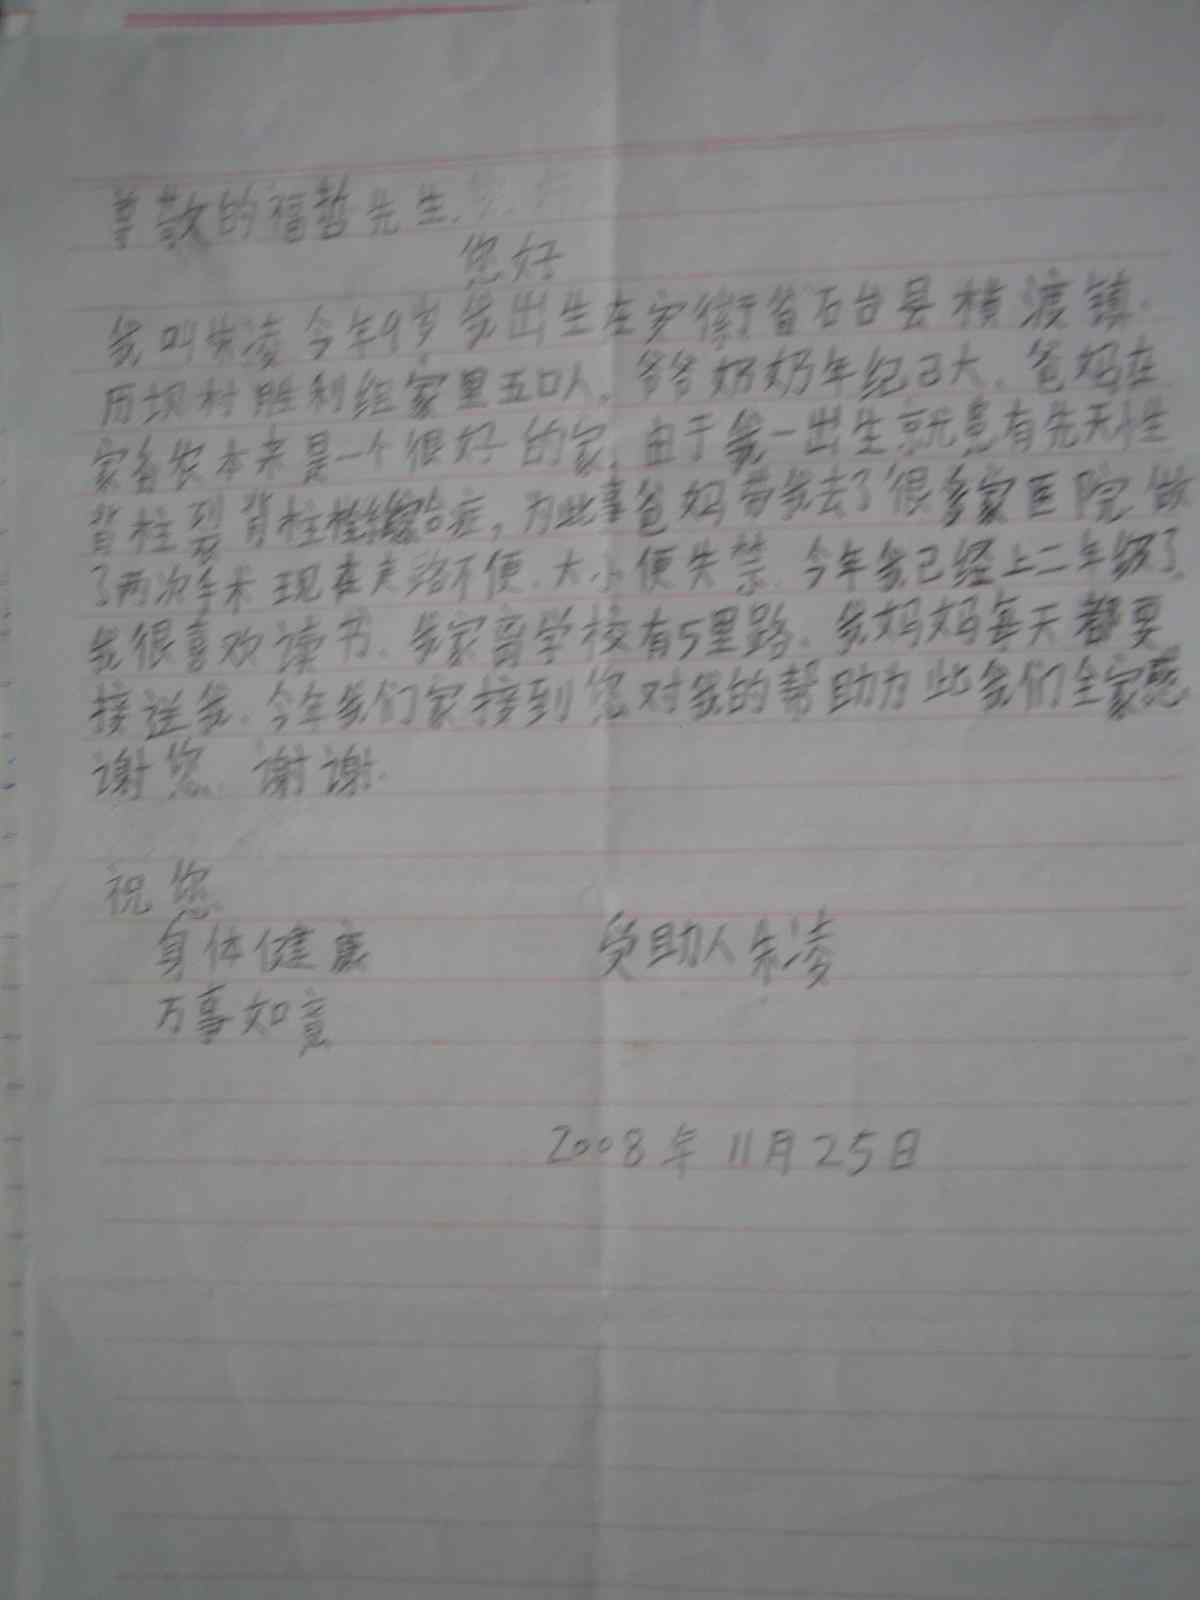 尊敬的福哲先生.
您好
我叫朱凌今年9岁我出生在安徽省石台县横渡镇.
历坝村胜利组家里五口人.爷爷奶奶年纪已大.爸妈在
家务农本来是一个很好的家.由于我一出生就患有先天性
脊柱裂脊柱栓综合症,为此事爸妈带我去了很多家医院做
了两次手术现在走路不便.大小便失禁.今年我已经上二年级了.
我很喜欢读书.我家离学校有5里路.我妈妈每天都要
接送我.今年我们家接到您对我的帮助为此我们全家感
谢您.谢谢.
祝您
身体健康 受助人朱凌
万事如意
2008年11月25日